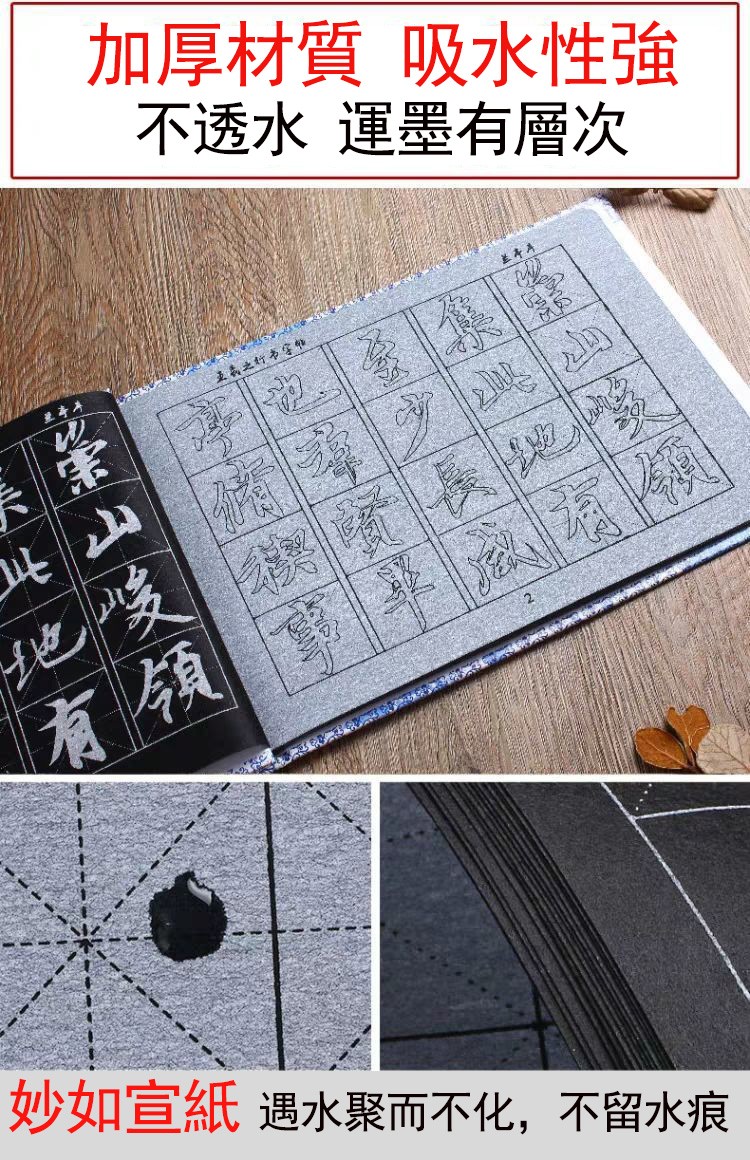 加厚材質 吸水性強
不透水 運墨有層次
兰亭序
王羲之行书字帖
崇山峻領
集此地有
至少長咸
也群賢畢
亭脩稧事
2
兰亭序
崇山峻領
集此地有
妙如宣紙 遇水聚而不化，不留水痕